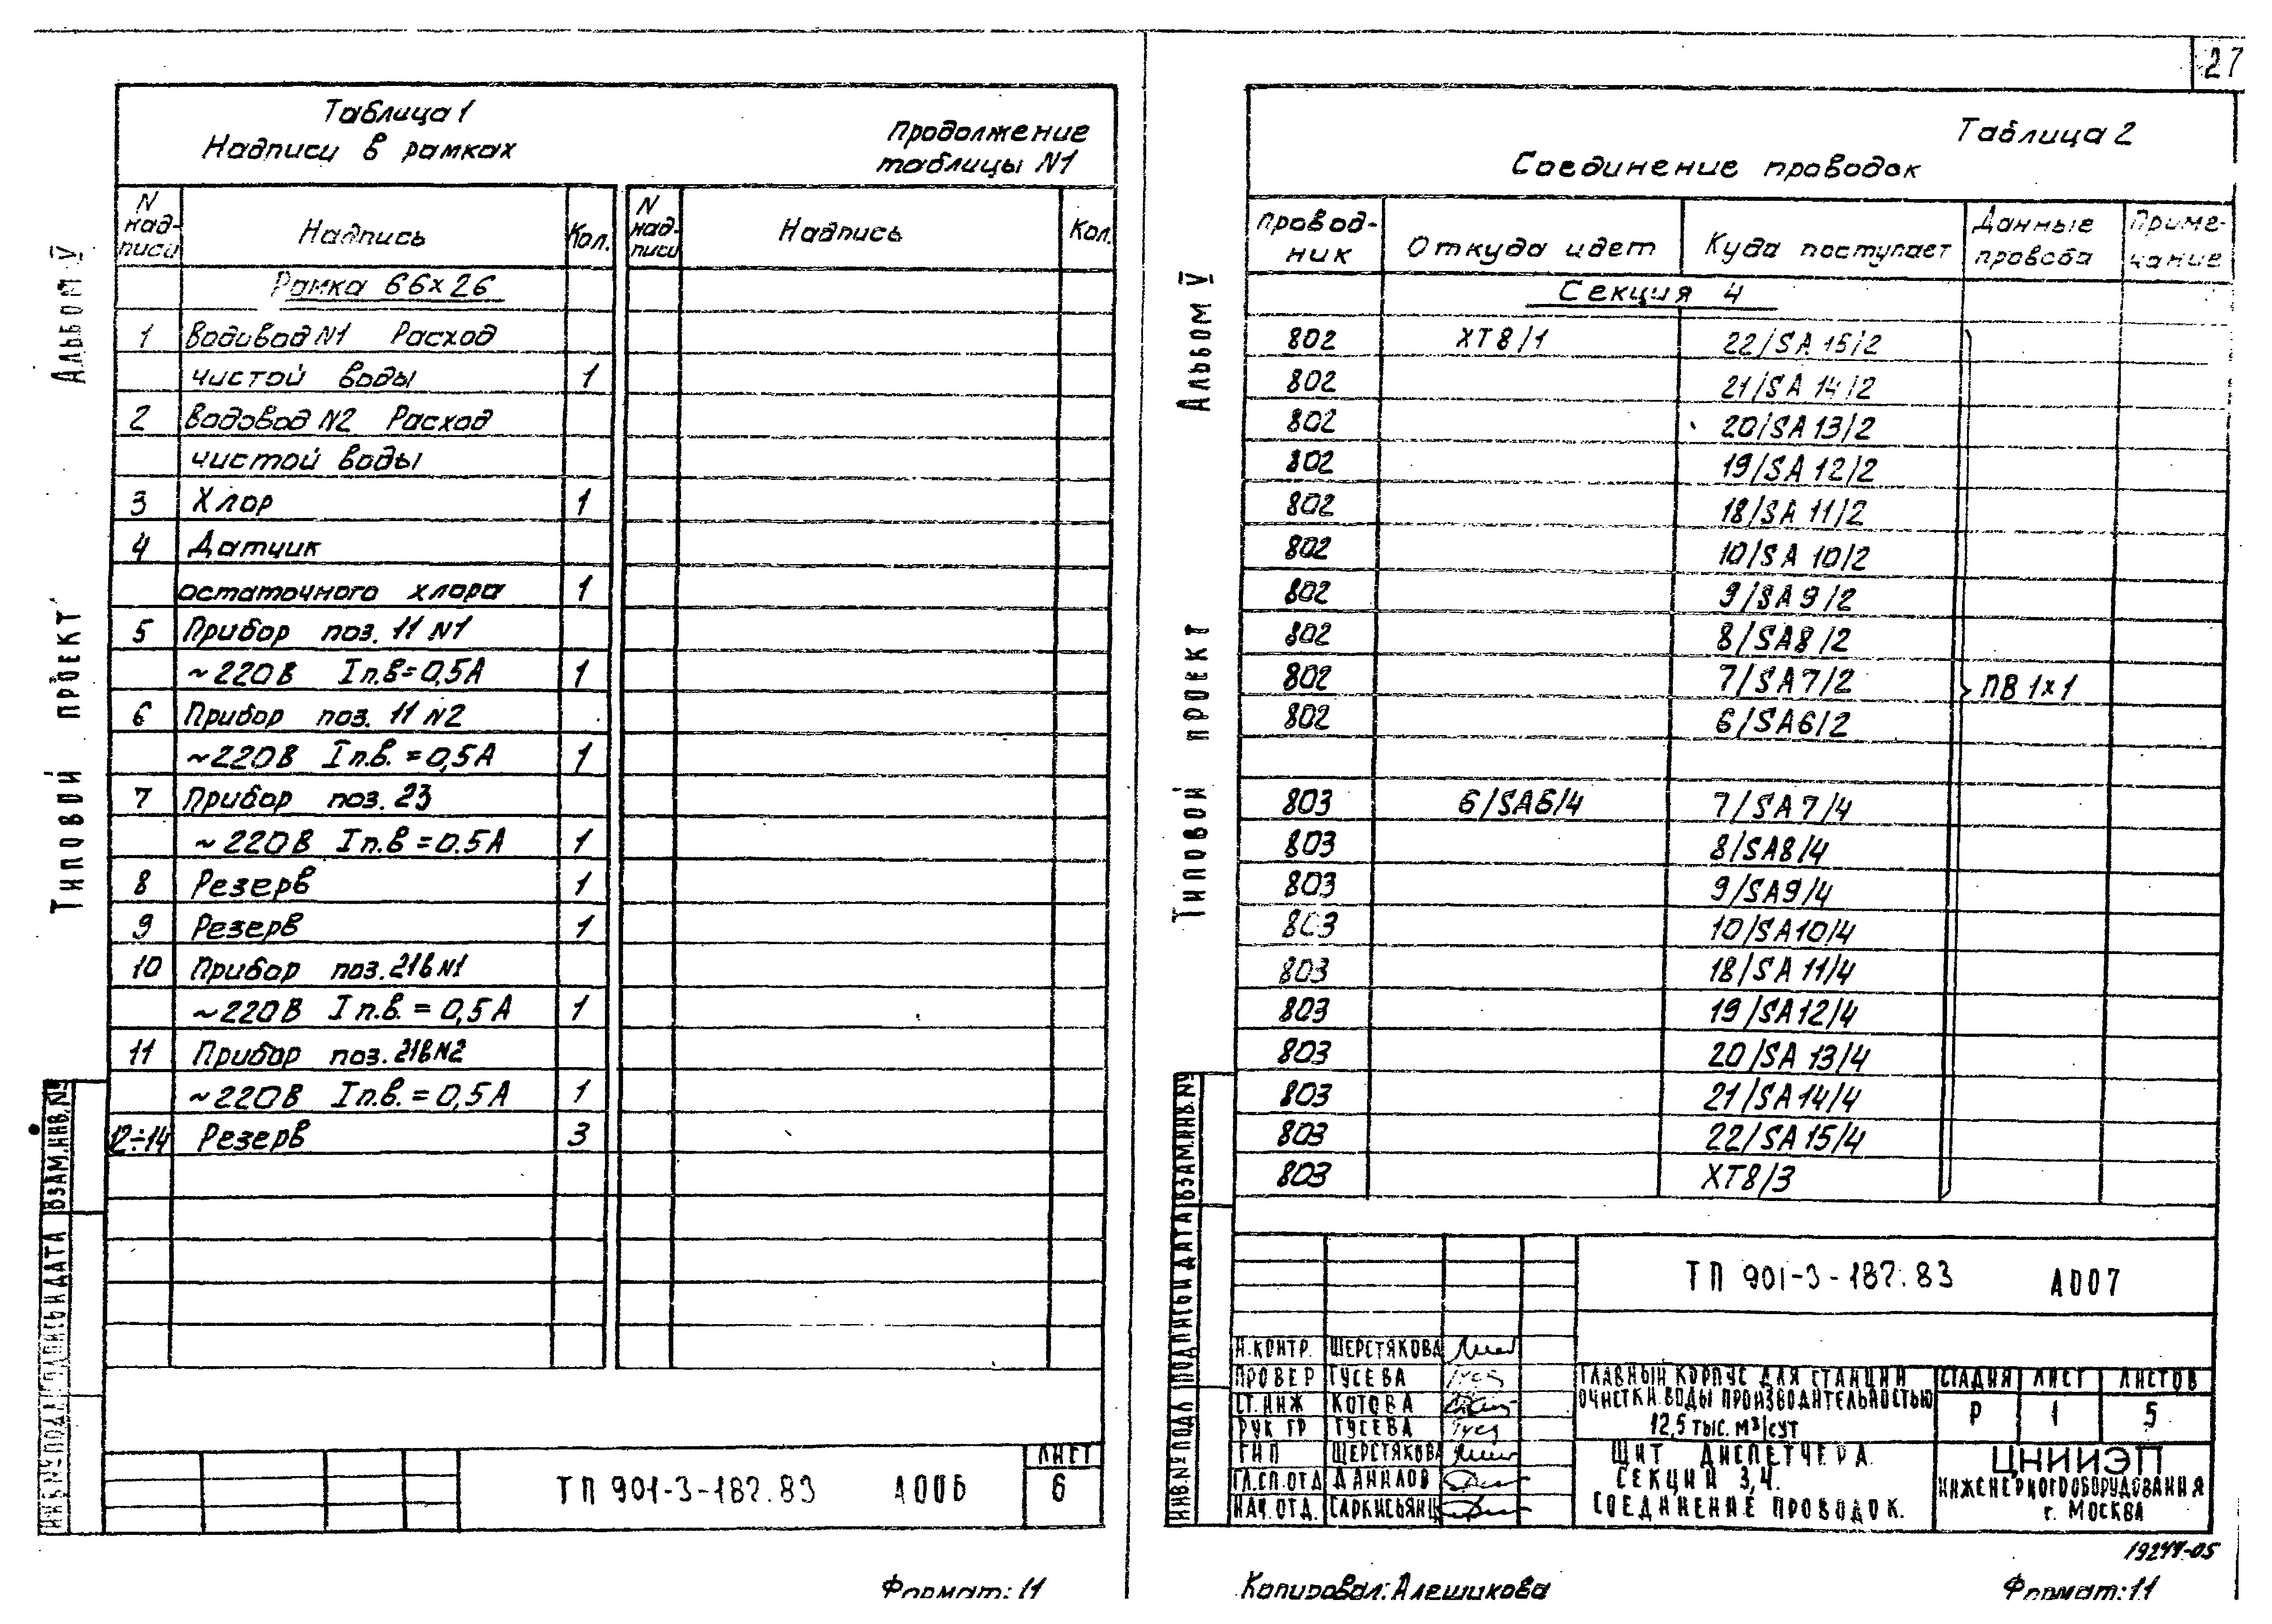 27
Таблица 1
Надписи в рамках
Продолжение
таблицы N1
N надписи Надпись Кол. N надписи Надпись Кол.
Рамка 66×26
1 Водовод N1 Расход
чистой воды 1
2 Водовод N2 Расход
чистой воды
3 Хлор 1
4 Датчик
остаточного хлора 1
5 Прибор поз. 11 N1
~220В Iп.в=0,5А 1
6 Прибор поз. 11 N2
~220В Iп.в.=0,5А 1
7 Прибор поз. 23
~220В Iп.в=0.5А 1
8 Резерв 1
9 Резерв 1
10 Прибор поз. 21в N1
~220В Iп.в.=0,5А 1
11 Прибор поз. 21в N2
~220В Iп.в.=0,5А 1
12÷14 Резерв 3
ТП 901-3-187.83 АО06
ЛИСТ
6
Формат: 11
Альбом V
Типовой проект
ВЗАМ.ИНВ.№
ПОДПИСЬ И ДАТА
ИНВ.№ ПОДЛ
Таблица 2
Соединение проводок
Провод-
ник
Откуда идет
Куда поступает
Данные
провода
Приме-
чание
Секция 4
802 ХТ8/1 22/SA15/2
802 21/SA14/2
802 20/SA13/2
802 19/SA12/2
802 18/SA11/2
802 10/SA10/2
802 9/SA9/2
802 8/SA8/2
802 7/SA7/2 ПВ 1×1
802 6/SA6/2
803 6/SA6/4 7/SA7/4
803 8/SA8/4
803 9/SA9/4
803 10/SA10/4
803 18/SA11/4
803 19/SA12/4
803 20/SA13/4
803 21/SA14/4
803 22/SA15/4
803 ХТ8/3
ТП 901-3-187.83 АО07
Н.КОНТР. ШЕРСТЯКОВА
ПРОВЕР ГУСЕВА
СТ.ИНЖ КОТОВА
РУК ГР ГУСЕВА
ГИП ШЕРСТЯКОВА
ГЛ.СП.ОТД ДАНИЛОВ
НАЧ.ОТД. САРКИСЬЯНЦ
ГЛАВНЫЙ КОРПУС ДЛЯ СТАНЦИИ
ОЧИСТКИ ВОДЫ ПРОИЗВОДИТЕЛЬНОСТЬЮ
12,5 ТЫС. М³/СУТ
СТАДИЯ ЛИСТ ЛИСТОВ
Р 1 5
ЩИТ ДИСПЕТЧЕРА.
СЕКЦИИ 3,4.
СОЕДИНЕНИЕ ПРОВОДОК.
ЦНИИЭП
ИНЖЕНЕРНОГО ОБОРУДОВАНИЯ
г. МОСКВА
19244-05
Копировал: Алешикова
Формат: 11
Альбом V
Типовой проект
ВЗАМ.ИНВ.№
ПОДПИСЬ И ДАТА
ИНВ.№ ПОДЛ